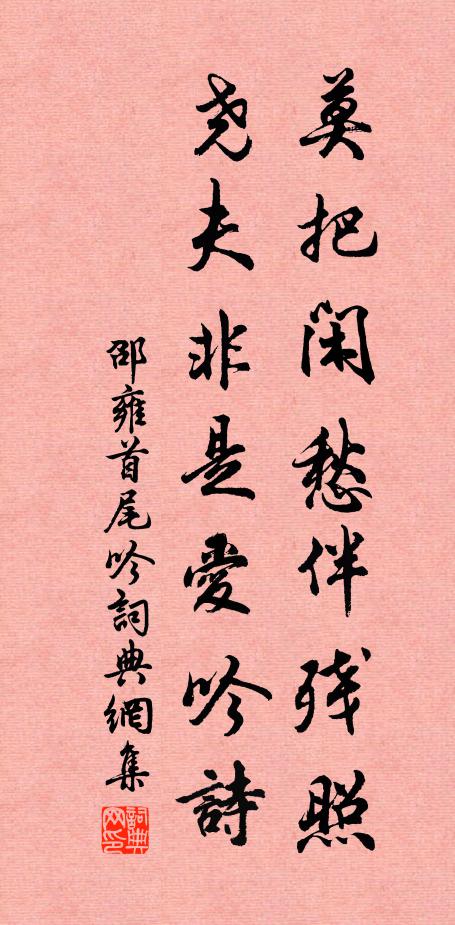 莫把闲愁伴残照
尧夫非是愛吟詩
邵雍首尾吟詞典網集
詞典网印